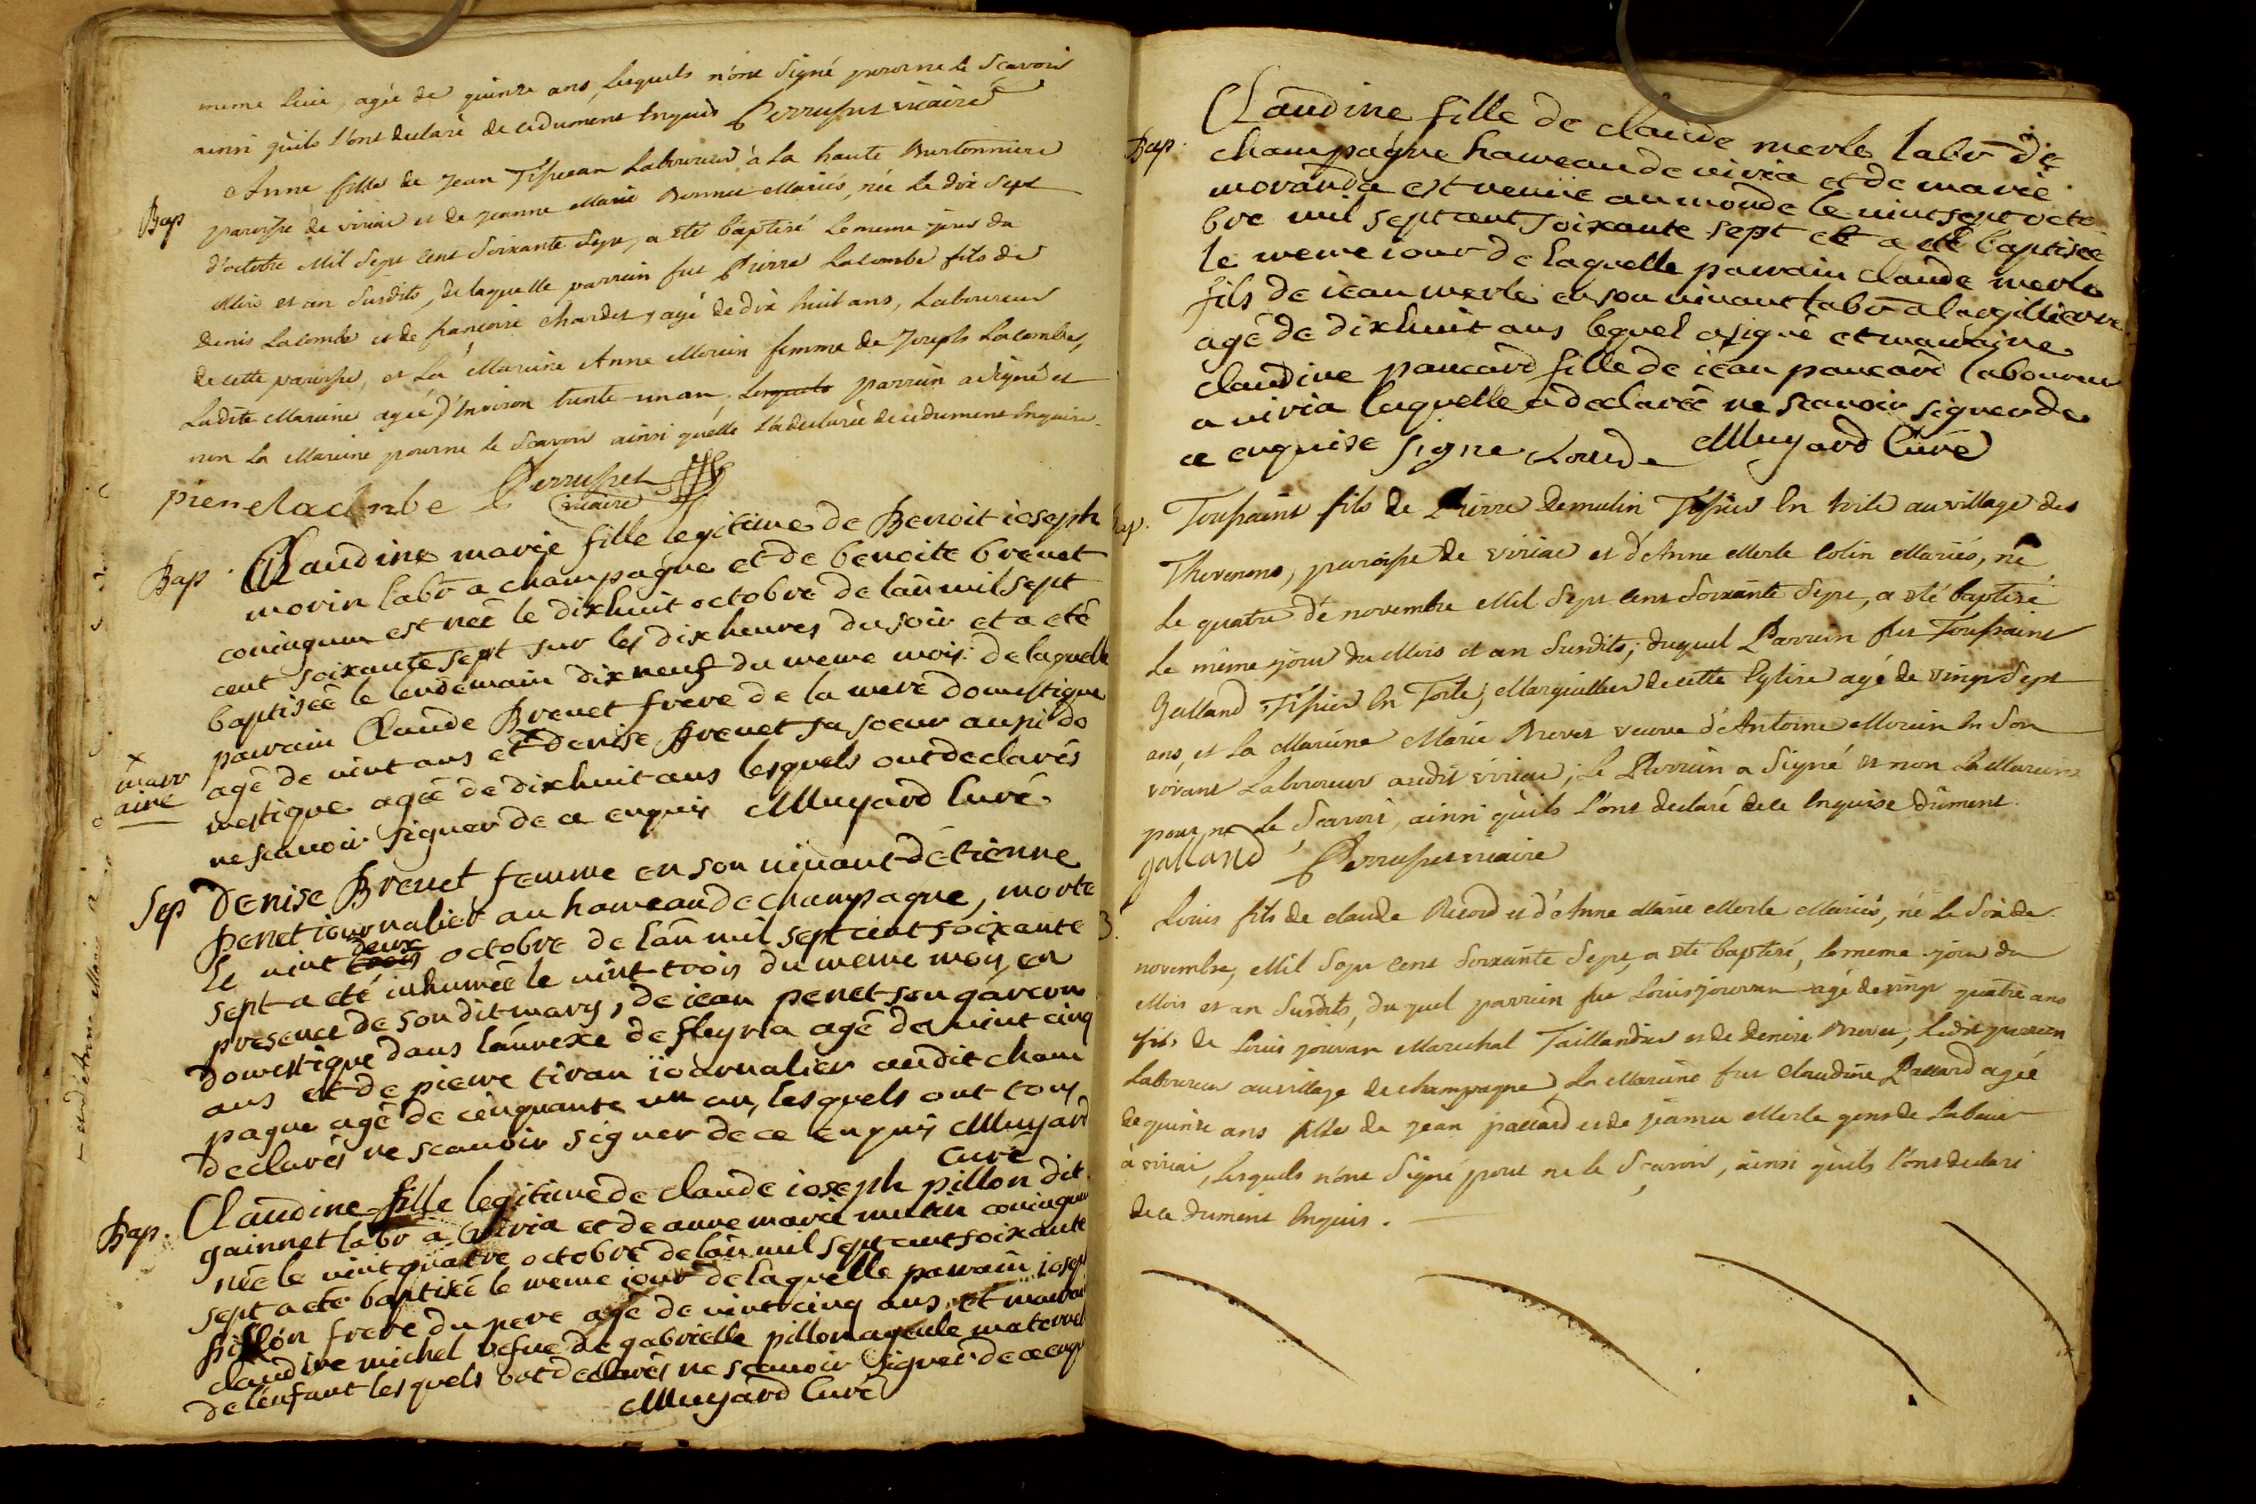 meme lieu, agée de quinze ans, lesquels n'ont signé pour ne le scavoir
ainsi qu'ils l'ont declaré de ce dument enquis Perruset vicaire
Bap
Anne fille de jean Tissecan Laboureur à la haute Burtonniere
paroisse de viriac et de jeanne Marie Bonnet Mariés, née le dix sept
d'octobre Mil Sept Cent Soixante Sept, a été baptisé le meme jour du
Mois et an Susdits, de laquelle parrain fut Pierre Lacombe fils de
denis Lacombe et de françoise Chardet, agé de dix huit ans, Laboureur
de cette paroisse, et La Maraine Anne Morin femme de Joseph Lacombe,
Ladite Maraine agée d'Environ trente-un an. Lesquels parrain a signé et
non la Maraine pour ne le Scavoir ainsi qu'elle l'a declarée de ce dument Enquise.
pierre lacombe Perruset vicaire
Bap.
Claudine marie fille legitime de Benoit ioseph
morin labr a champagne et de benoite brevet
coniugum est née le dixhuit octobre de lan mil sept
cent soixante sept sur les dix heures du soir et a eté
baptisée le lendemain dix neuf du meme mois: de laquelle
parrain Claude Brevet frere de la mere domestique
x marr
aine
agé de vint ans et x denise Brevet sa soeur aussi do
mestique agée de dixhuit ans lesquels ont declarés
ne scauoir signer de ce enquis Muyard Curé
Sep
Denise Brevet femme en son uiuant détienne
penet iournalier au hameau de champagne, morte
le vint trois deux octobre de lan mil sept cent soixante
sept a eté inhumée le vint trois du meme mois, en
presence de son dit mary, de iean penet son garcon
domestique dans lánnexe de fleyria agé de vint cinq
ans et de pierre tiran iournalier audit cham
pagne agé de cinquante un an, lesquels ont tous
declarés ne scauoir signer de ce enquis Muyard
Curé
Bap.
Claudine fille legitime de claude ioseph pillon dit
gainnet labr a viria et de anne marie mutin coniugum
née le vint quatre octobre de lan mil sept cent soixante
sept a eté baptisé le meme iour de laquelle parrain iosep
pillon frere du pere agé de vint cinq ans, et marrai
claudine michel vefue de gabrielle pillon ayeule maternel
de lenfant lesquels ont declarés ne scauoir signer de ce enqu
Muyard Curé
Bap.
Claudine fille de claude merle labr de
champagne hameau de viria et de marie
moranda est venüe au monde le vint sept octo
bre mil sept cent soixante sept et a eté baptisée
le meme iour de laquelle parrain claude merle
fils de iean merle en son uiuant labr a
agé de dixhuit ans lequel a signé et marraine
claudine paueard fille de iean paueard laboureur
a viria laquelle a declarée ne scauoir signer de
ce enquise signe Muyard Curé
Bap.
Toussaint fils de Pierre Demulin Tissier En toile au village des
Thevenons, paroisse de viriac et d'Anne Merle Colin Mariés, né
le quatre de novembre Mil Sept Cent Soixante Sept, a été baptisé
le même jour du Mois et an Susdits; duquel Parrain fut Toussaint
Galland Tissier En Toile, Marguillier de cette Eglise agé de vingt Sept
ans, et La Maraine Marie Brevet veuve d'Antoine Morin En Son
vivant Laboureur audit viriac; le Parrain a Signé et non La Maraine
pour ne le Scavoir, ainsi qu'ils l'ont declaré de ce Enquise dûment.
galland Perruset vicaire
B.
Louis fils de claude Ricord et d'Anne Marie Merle Mariés, né le Six de
novembre, Mil Sept Cent Soixante Sept, a été baptisé, le meme jour du
Mois et an Susdits, du quel parrain fut Louis jouvan agé de vingt quatre ans
fils de Louis jouvan Marechal Taillandier et de denise Brevet, ledit parrain
Laboureur au village de champagne, La Maraine fut Claudine Pauard agée
de quinze ans fille de jean pauard et de jeanne Merle gens de Labeur
à viriac, Lesquels n'ont Signé pour ne le Scavoir, ainsi qu'ils l'ont declaré
de ce dument Enquis.